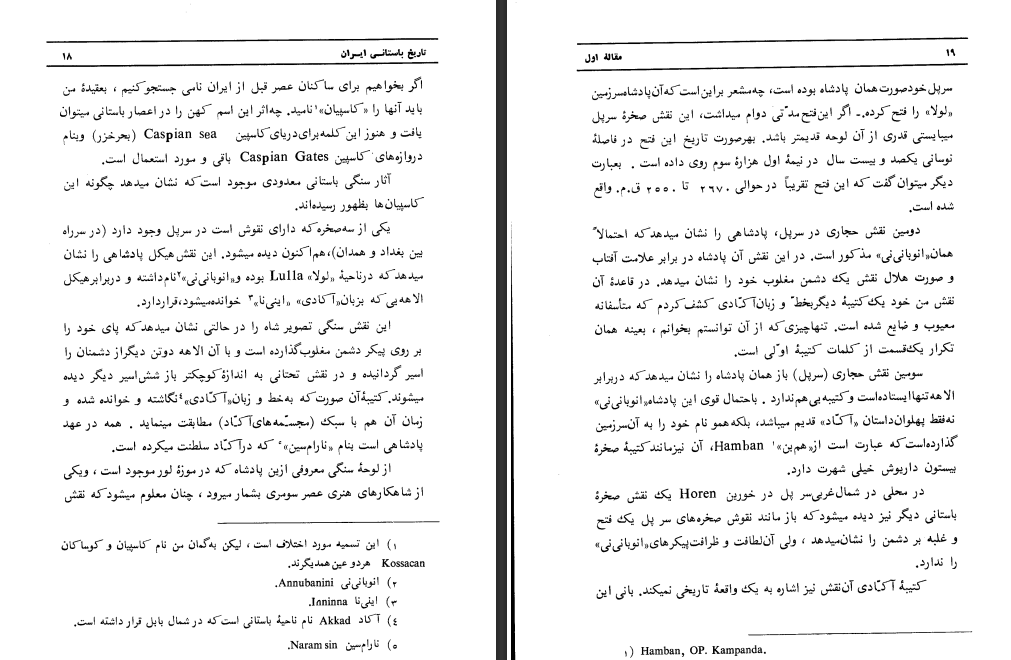 ۱۸ تاریخ باستانی ایران
اگر بخواهیم برای ساکنان عصر قبل از ایران نامی جستجوکنیم ، بعقیدهٔ من
باید آنها را «کاسپیان»۱ نامید. چه‌اثر این اسم کهن را در اعصار باستانی میتوان
یافت و هنوز این کلمه برای دریای کاسپین Caspian sea (بحرخزر) وبنام
دروازه‌های کاسپین Caspian Gates باقی و مورد استعمال است.
آثار سنگی باستانی معدودی موجود است‌که نشان میدهد چگونه این
کاسپیان‌ها بظهور رسیده‌اند.
یکی از سه‌صخره‌که دارای نقوش است در سرپل وجود دارد (در سرراه
بین بغداد و همدان)، هم‌اکنون دیده میشود. این نقش هیکل پادشاهی را نشان
میدهدکه درناحیهٔ «لولا» Lulla بوده و«انوبانی‌نی»۲ نام‌داشته و دربرابرهیکل
الاهه‌یی‌که بزبان«آکادی» «اینی‌نا»۳ خوانده‌میشود،قراردارد.
این نقش سنگی تصویر شاه را در حالتی نشان میدهدکه پای خود را
بر روی پیکر دشمن مغلوب‌گذارده است و با آن الاهه دوتن دیگراز دشمنان را
اسیر گردانیده و در نقش تحتانی به اندازهٔ کوچکتر باز شش‌اسیر دیگر دیده
میشوند.کتیبهٔ‌آن صورت‌که به‌خط و زبان«آکـّادی»٤ نگاشته و خوانده شده و
زمان آن هم با سبک (مجسـّمه‌های‌آکـّاد) مطابقت مینماید . همه در عهد
پادشاهی است بنام «نارام‌سین»٥ که درآکـّاد سلطنت میکرده است.
از لوحهٔ سنگی معروفی ازین پادشاه که در موزهٔ لور موجود است ، ویکی
از شاهکارهای هنری عصر سومری بشمار میرود ، چنان معلوم میشودکه نقش
۱) این تسمیه مورد اختلاف است ، لیکن به‌گمان من نام کاسپیان و کوساکان
Kossacan هردو عین همدیگرند.
۲) انوبانی‌نی Annubanini.
۳) اینی‌نا Ininna.
٤) آکاد Akkad نام ناحیهٔ باستانی است‌که در شمال بابل قرار داشته است.
٥) نارام‌سین Naram sin.
مقالهٔ اول ۱۹
سرپل خودصورت همان پادشاه بوده است، چه‌مشعر براین‌است که‌آن‌پادشاه‌سرزمین
«لولا» را فتح کرده.ـ اگر این‌فتح‌مدّتی دوام میداشت، این نقش صخرهٔ سرپل
میبایستی قدری از آن لوحه قدیمتر باشد. بهرصورت تاریخ این فتح در فاصلهٔ
نوسانی یکصد و بیست سال در نیمهٔ اول هزارهٔ سوم روی داده است . بعبارت
دیگر میتوان گفت که این فتح تقریباً درحوالی ۲۶۷۰ تا ۲۵۵۰ ق.م. واقع
شده است.
دومین نقش حجاری در سرپل، پادشاهی را نشان میدهدکه احتمالاً
همان«انوبانی‌نی» مذکور است. در این نقش آن پادشاه در برابر علامت آفتاب
و صورت هلال نقش یک دشمن مغلوب خود را نشان میدهد. در قاعدهٔ آن
نقش من خود یک‌کتیبهٔ دیگربخطّ و زبان‌آکـّادی کشف‌کردم که متأسفانه
معیوب و ضایع شده است. تنهاچیزی‌که از آن توانستم بخوانم ، بعینه همان
تکرار یک‌قسمت از کلمات کتیبهٔ اوّلی است.
سومین نقش حجاری (سرپل) باز همان پادشاه را نشان میدهدکه دربرابر
الاهه‌تنهاایستاده‌است وکتیبه‌یی‌هم‌ندارد . باحتمال قوی این پادشاه«انوبانی‌نی»
نه‌فقط پهلوان‌داستان «آکـّاد» قدیم میباشد، بلکه‌همو نام خود را به آن‌سرزمین
گذارده‌است‌که عبارت است از«هم‌بن»۱ Hamban، آن نیزمانندکتیبهٔ صخرهٔ
بیستون داریوش خیلی شهرت دارد.
در محلی در شمال‌غربی‌سر پل در خورین Horen یک نقش صخرهٔ
باستانی دیگر نیز دیده میشودکه باز مانند نقوش صخره‌های سر پل یک فتح
و غلبه بر دشمن را نشان‌میدهد ، ولی آن‌لطافت و ظرافت‌پیکرهای«انوبانی‌نی»
را ندارد.
کتیبهٔ آکـّادی آن‌نقش نیز اشاره به یک واقعهٔ تاریخی نمیکند. بانی این
۱) Hamban, OP. Kampanda.